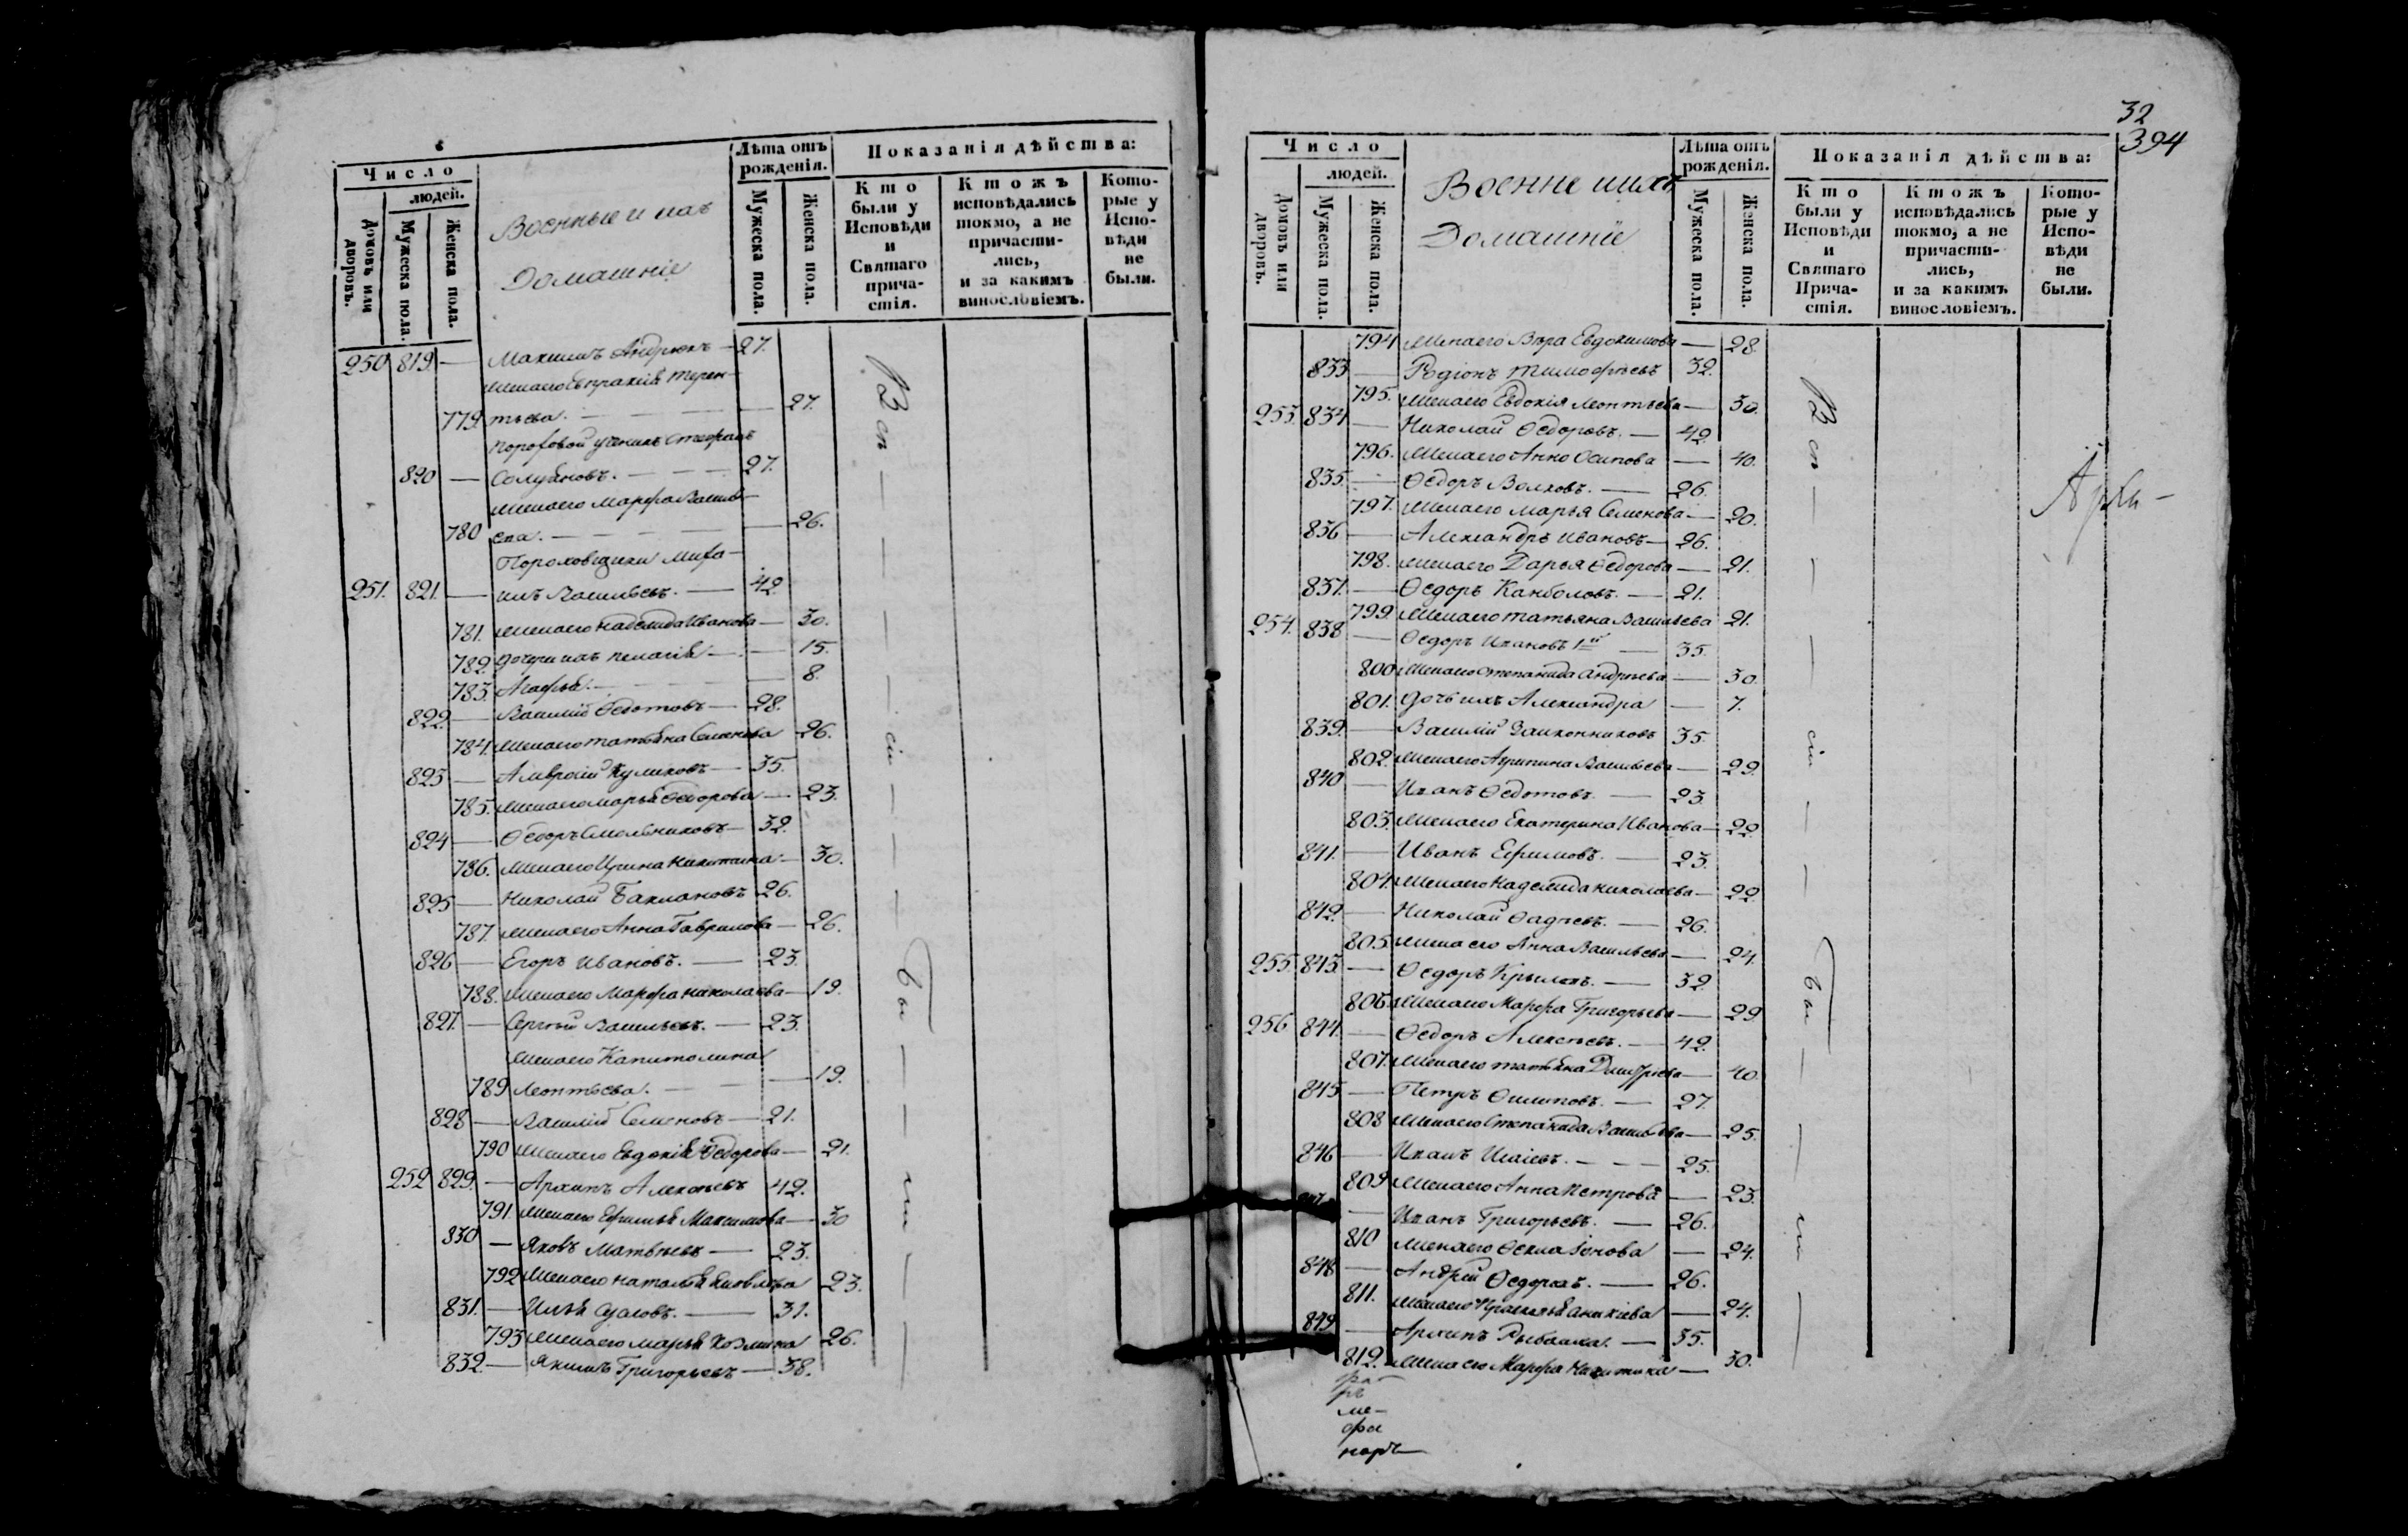 Число
людей.
Домовъ или дворовъ.
Мужеска пола.
Женска пола.
Военные и ихъ
Домашніе
Лѣта отъ рожденія.
Мужеска пола.
Женска пола.
Показанія дѣйства:
Кто были у Исповѣди и Святаго причастія.
Ктожъ исповѣдались токмо, а не причастились, и за какимъ винословіемъ.
Которые у Исповѣди не были.
250 819 — Максимъ Андреевъ — 27.
Жена его Евпраксія Терен-
779 тьева. — — 27.
Пороховой ученикъ Стефанъ
820 — Солубновъ. — 27.
Жена его Марфа Василь-
780 ева. — — 26.
Пороховщики Миха-
251. 821. — илъ Васильевъ. — 42.
781. Жена его Надежда Иванова — 30.
782. Дочери ихъ Пелагія — 15.
783. Агафья. — 8.
822. — Василій Федотовъ — 28.
784. Жена его Татьяна Семенова 26.
823 — Амвросій Куликовъ — 35.
785. Жена его Марья Ѳедорова — 23.
824 — Ѳедоръ Смольниковъ — 32.
786. Жена его Ирина Никитина — 30.
825 — Николай Баклановъ 26.
787. Жена его Анна Гаврилова — 26.
826 — Егоръ Ивановъ. — 23.
788. Жена его Марфа Николаева — 19.
827. — Сергѣй Васильевъ. — 23.
Жена его Капитолина
789 Леонтьева. — — 19.
828 — Василій Семеновъ — 21.
790 Жена его Евдокія Ѳедорова — 21.
252 829. — Архипъ Алексѣевъ 42.
791. Жена его Ефимья Максимова — 30
830 — Яковъ Матвѣевъ — 23.
792 Жена его Наталья Яковлева 23.
831. — Илья Сусловъ. — 31.
793 Жена его Марья Козмина 26.
832. — Якимъ Григорьевъ — 38.
Всѣ
сіи
бы
ли
32
394
Число
людей.
Домовъ или дворовъ.
Мужеска пола.
Женска пола.
Военне ихъ
Домашніе
Лѣта отъ рожденія.
Мужеска пола.
Женска пола.
Показанія дѣйства:
Кто были у Исповѣди и Святаго Причастія.
Ктожъ исповѣдались токмо, а не причастились, и за какимъ винословіемъ.
Которые у Исповѣди не были.
794 Жена его Вѣра Евдокимова — 28.
833 — Родіонъ Тимофѣевъ 32.
795. Жена его Евдокія Леонтьева — 30.
253. 834 — Николай Ѳедоровъ. — 42.
796. Жена его Анна Осипова — 40.
835. — Ѳедоръ Волковъ. — 26.
797. Жена его Марья Семенова — 20.
836 — Александръ Ивановъ — 26.
798. Жена его Дарья Ѳедорова — 21.
837. — Ѳедоръ Канболовъ. — 21.
799. Жена его Татьяна Васильева 21.
254. 838 — Ѳедоръ Ивановъ 1й — 35.
800 Жена его Степанида Андреева — 30.
801. Дочь ихъ Александра — 7.
839. — Василій Заиконниковъ 35.
802. Жена его Агрипина Васильева — 29.
840 — Иванъ Ѳедотовъ. — 23.
803. Жена его Екатерина Иванова — 22.
841. — Иванъ Ефимовъ. — 23.
804. Жена его Надежда Николаева — 22.
842. — Николай Ѳадѣевъ. — 26.
805 Жена его Анна Васильева — 24.
255 843. — Ѳедоръ Крыловъ. — 32.
806. Жена его Марфа Григорьева — 29
256 844. — Ѳедоръ Алексѣевъ. — 42.
807. Жена его Татьяна Дмитріева — 40
845 — Петръ Ѳилиповъ. — 27.
808 Жена его Степанида Васильева — 25.
846 — Иванъ Исаіевъ. — 25.
809 Жена его Анна Петрова — 23.
— Иванъ Григорьевъ. — 26.
810 Жена его Ѳекла Іонова — 24.
848 — Андрей Ѳедоровъ. — 26.
811. Жена его Прасковья Аникіева — 24.
849 — Архипъ Рыбаковъ. — 35.
812. Жена его Марфа Никитина — 30.
Всѣ
сіи
бы
ли
Архи-